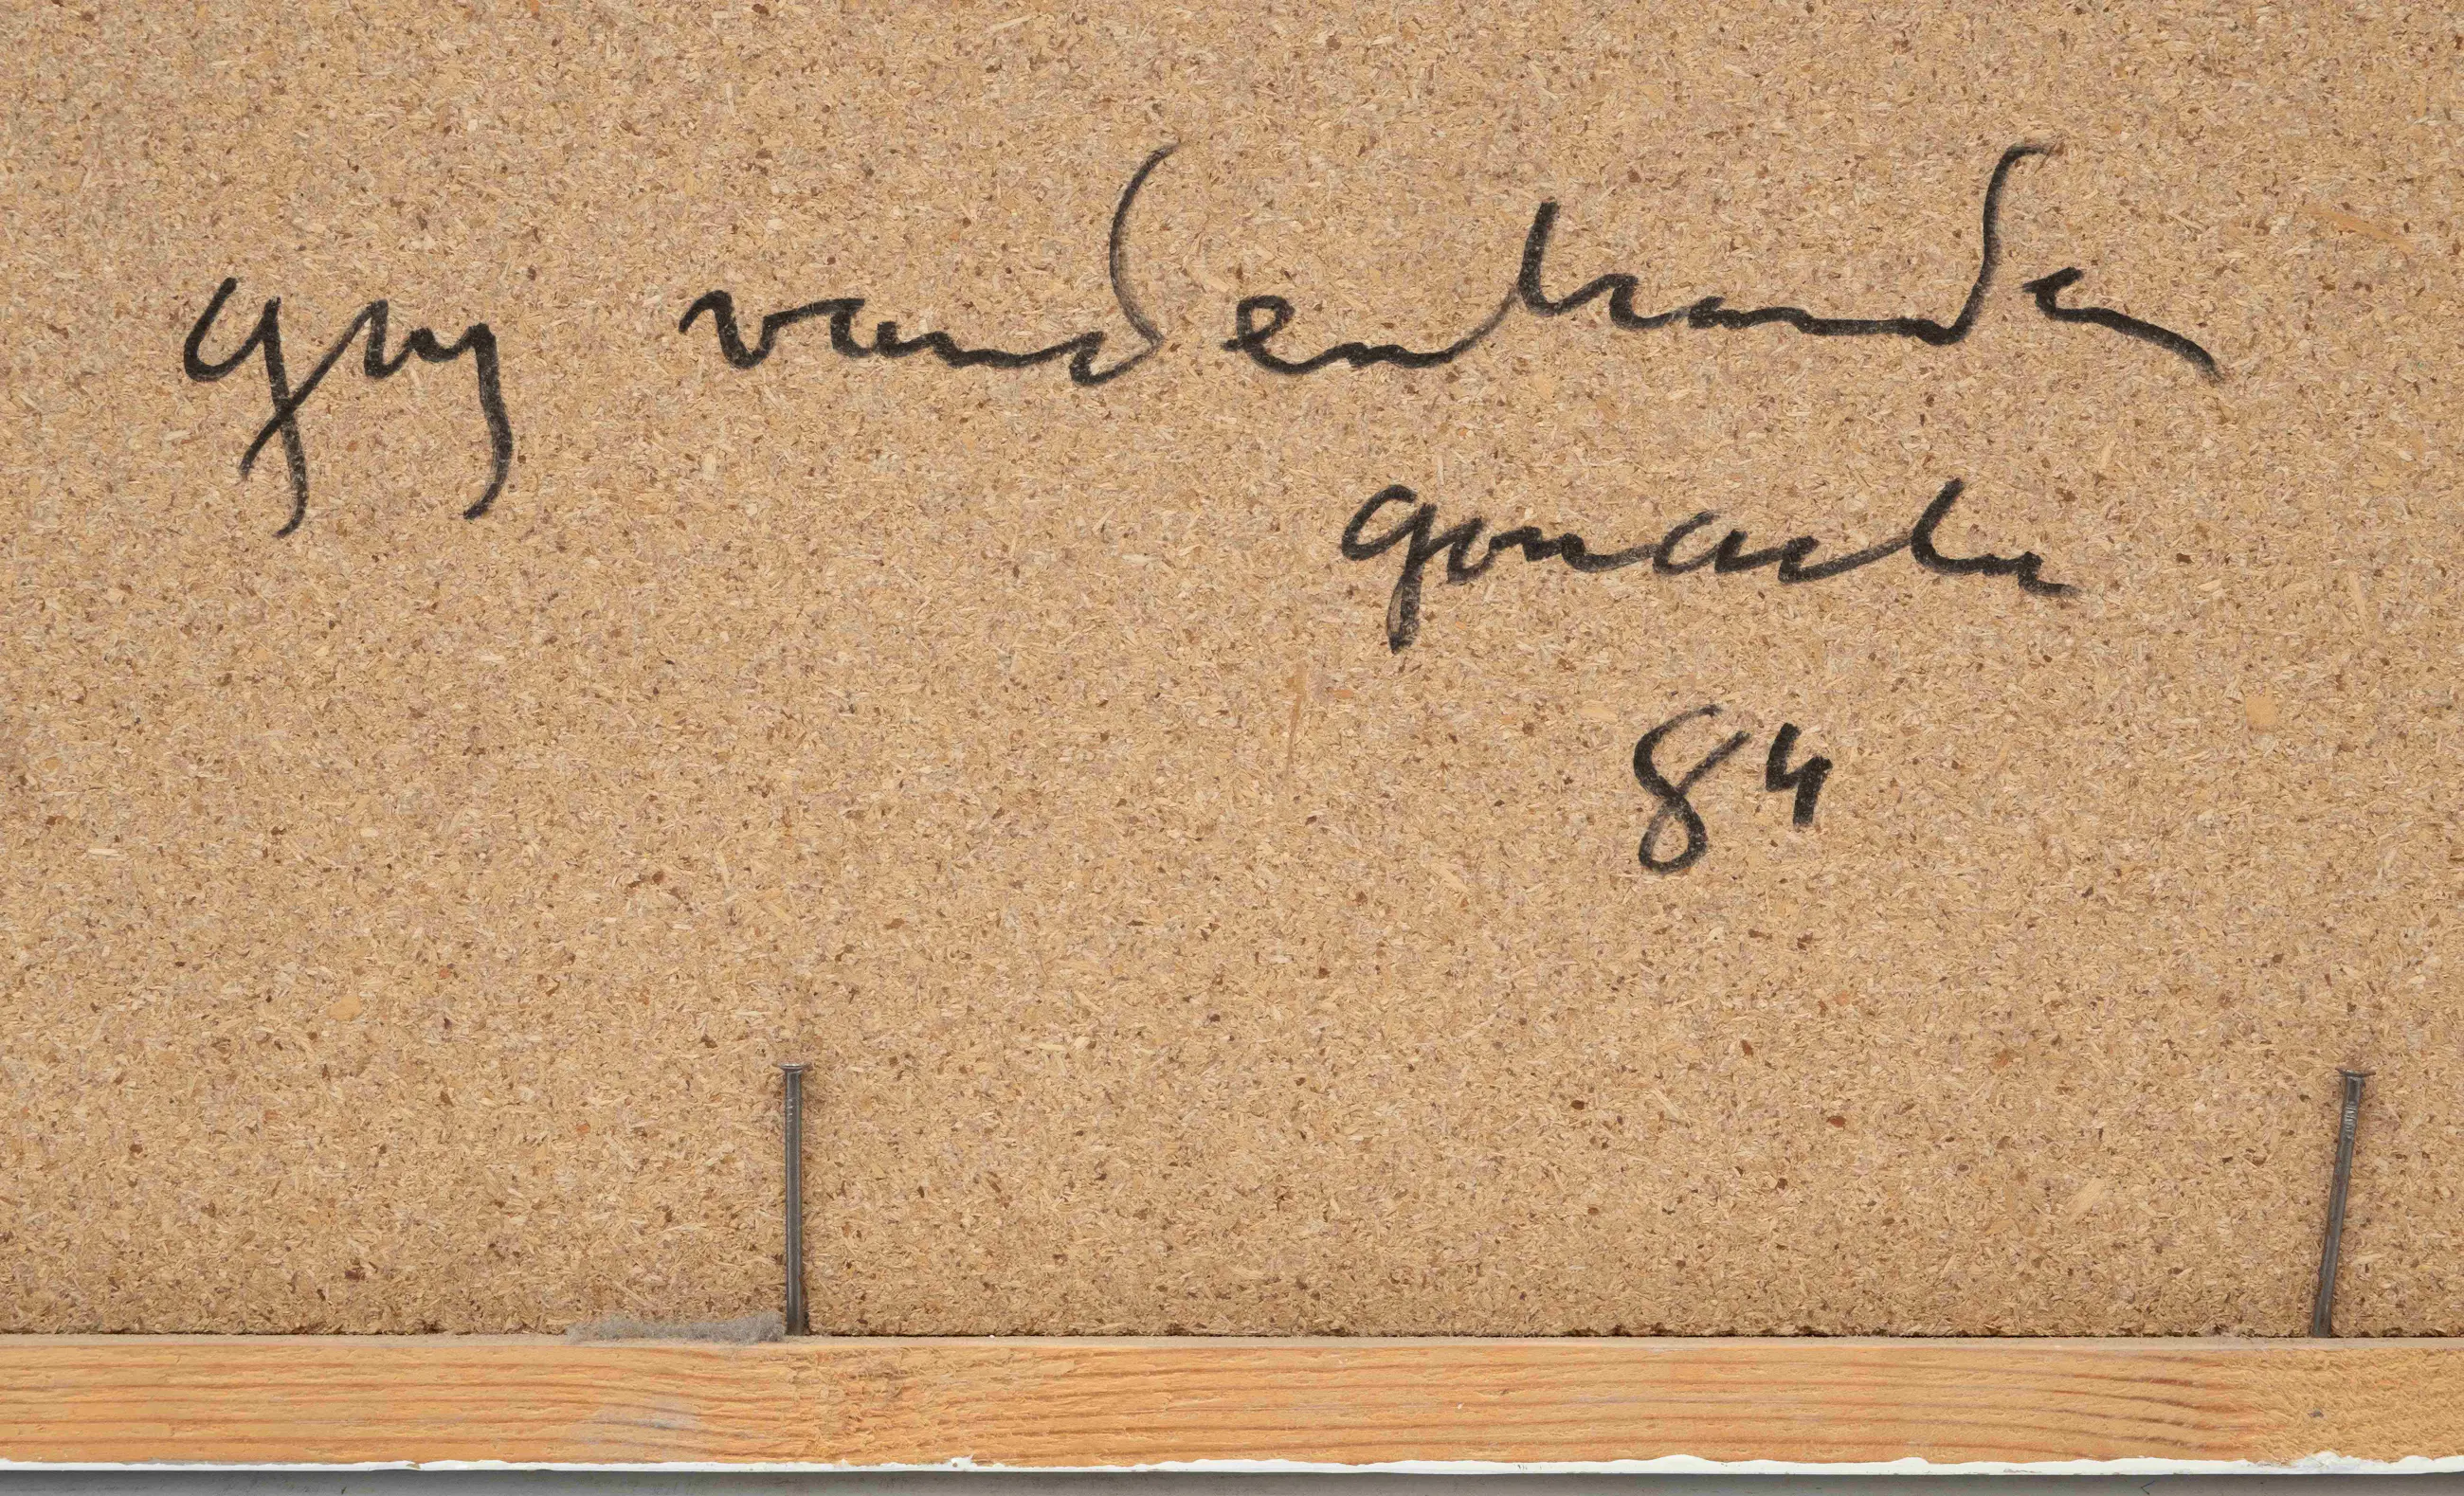 guy vandenbranden
gouache
84